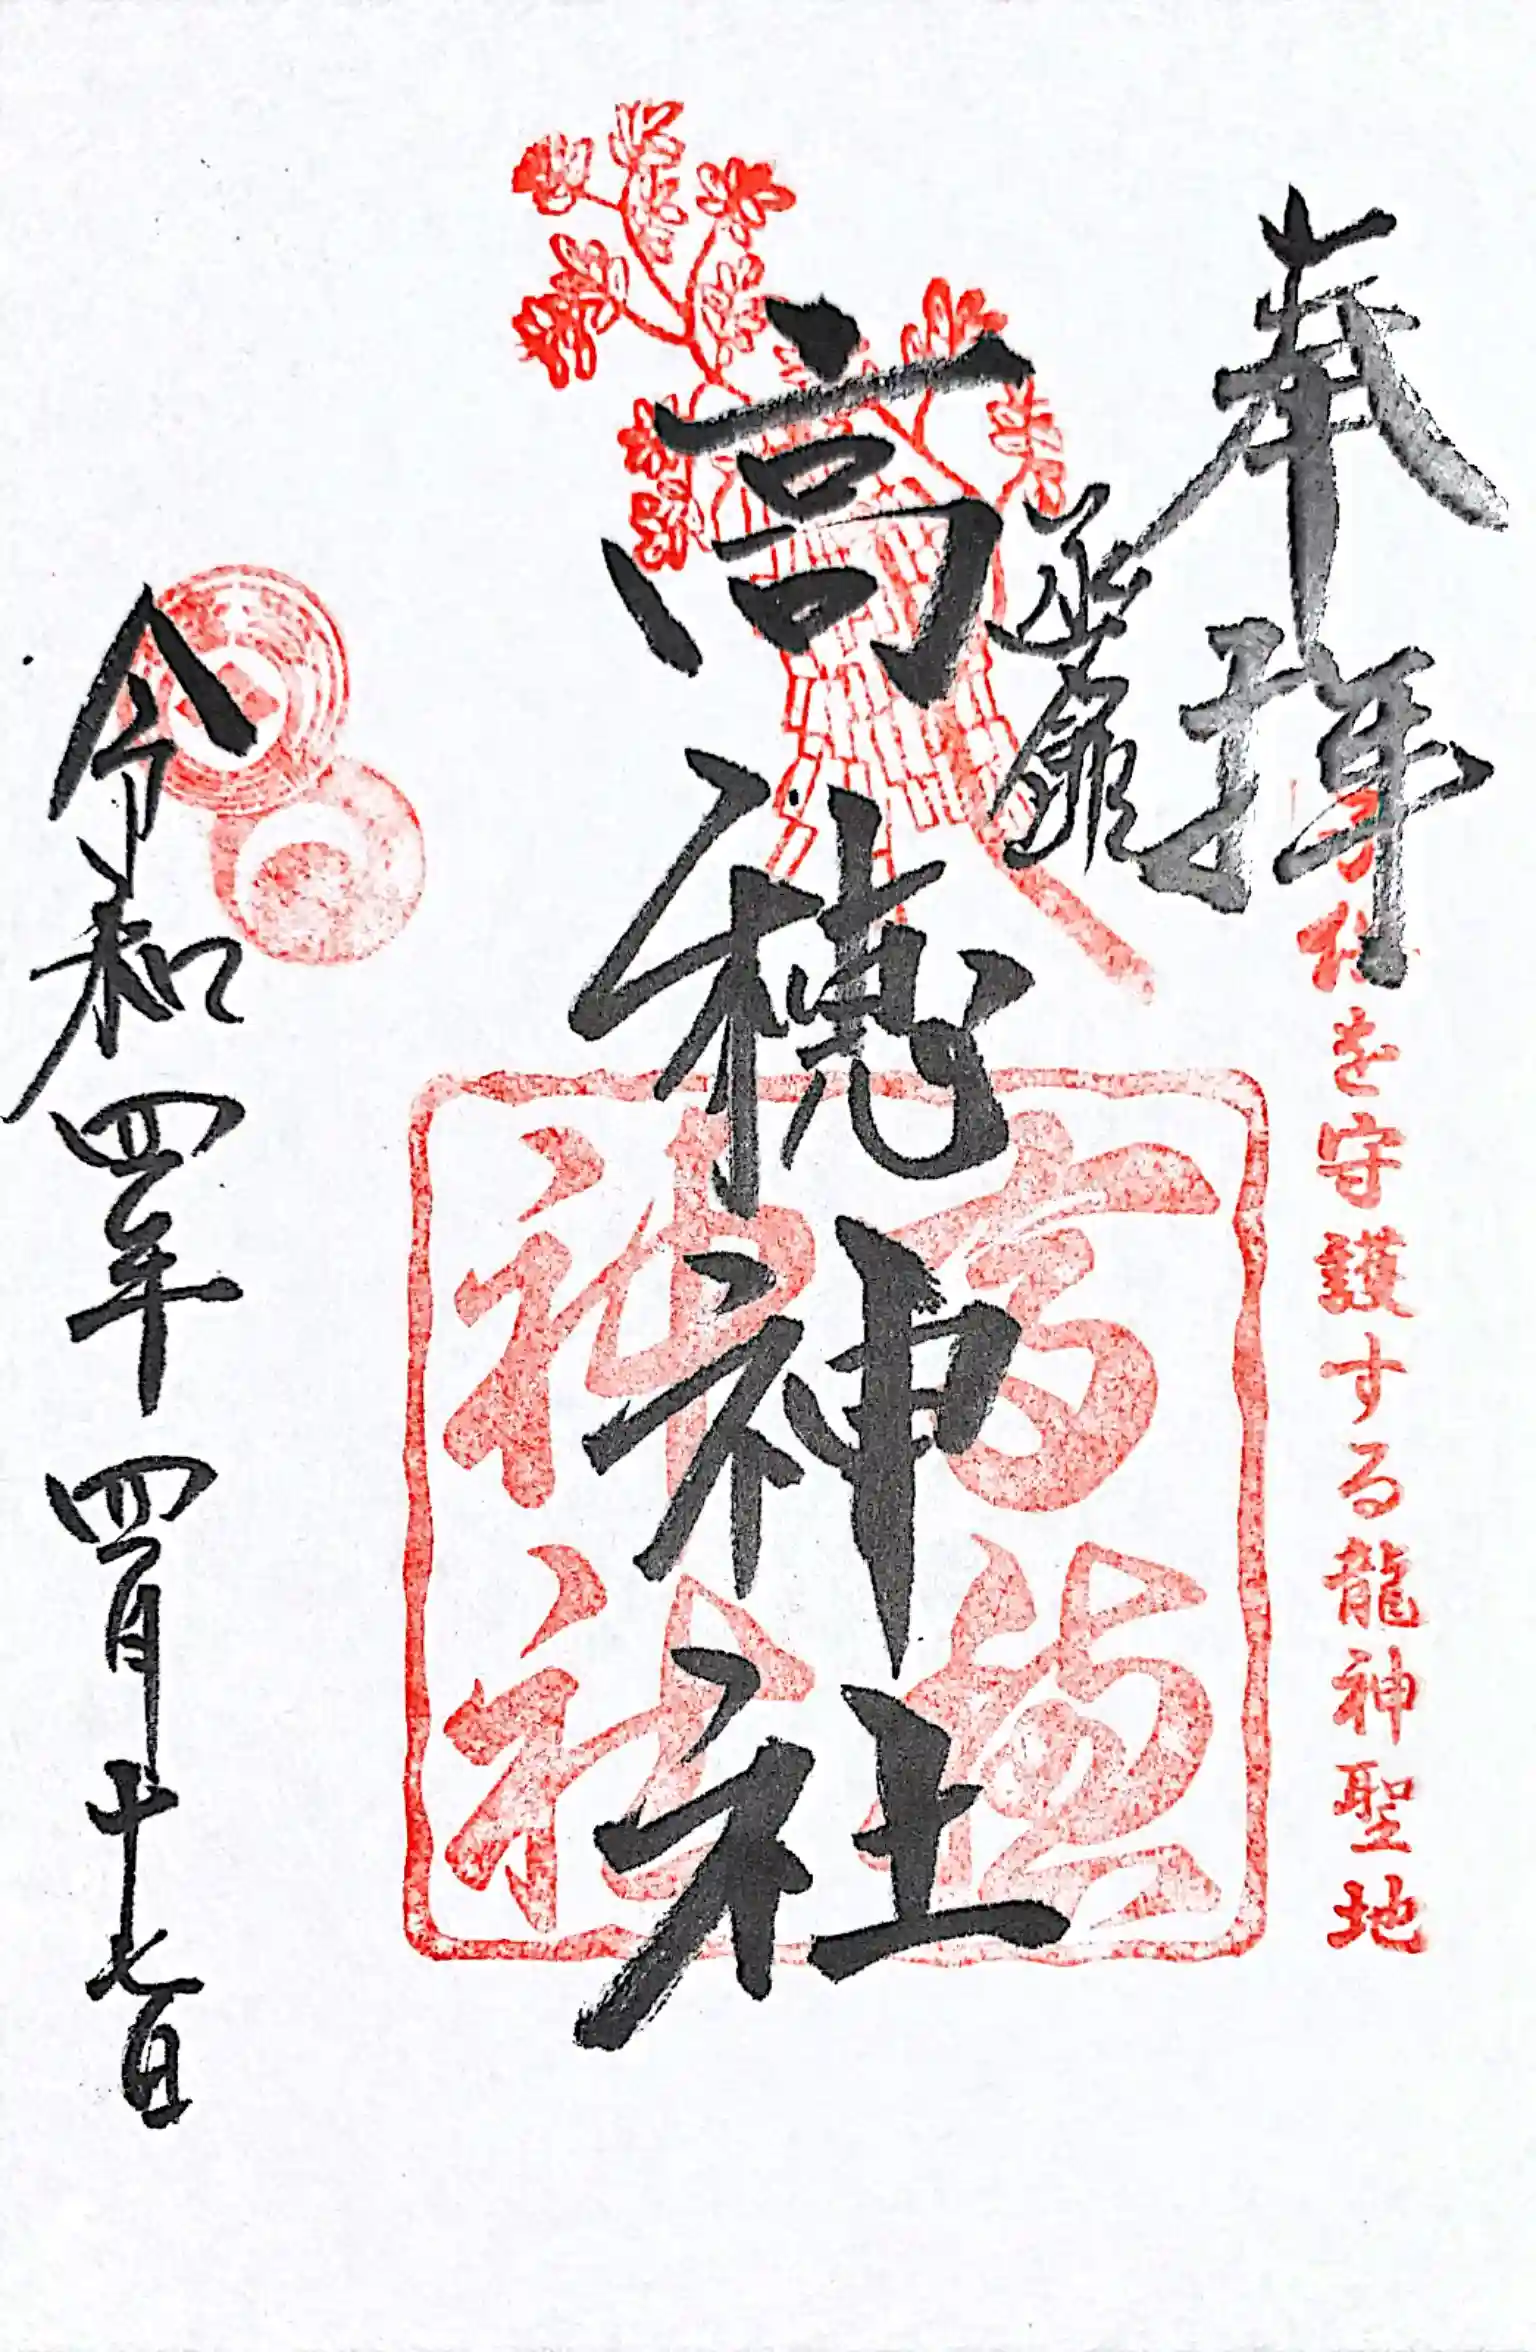 奉拝
を守護する龍神聖地
高穂神社
高穂
神社
令和四年四月十七日